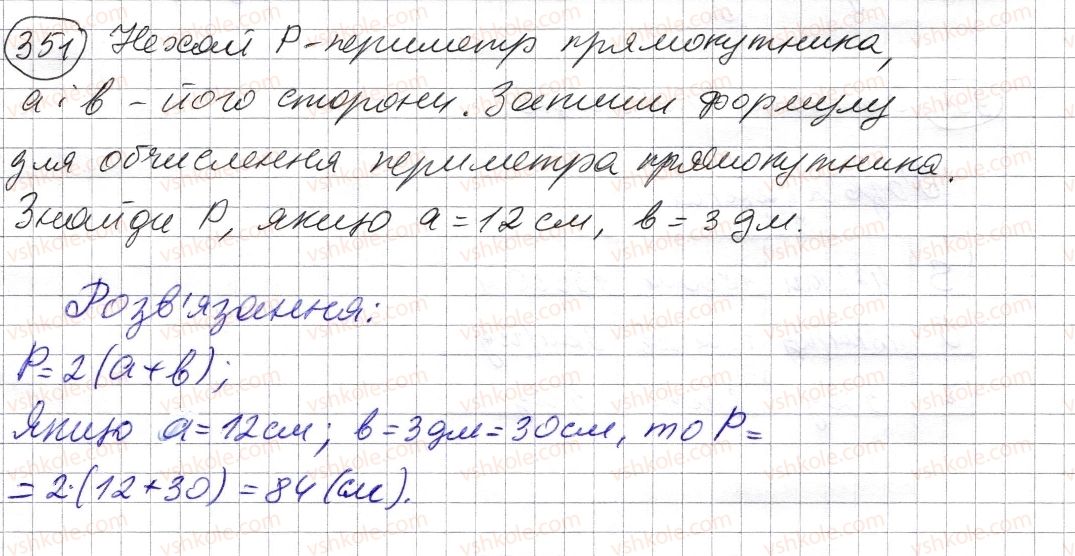 351 Нехай P - периметр прямокутника,
a і b - його сторони. Запиши формулу
для обчислення периметра прямокутника.
Знайди P, якщо a = 12 см, b = 3 дм.
Розв'язання:
P = 2(a + b);
Якщо a = 12 см; b = 3 дм = 30 см, то P =
= 2·(12 + 30) = 84 (см).